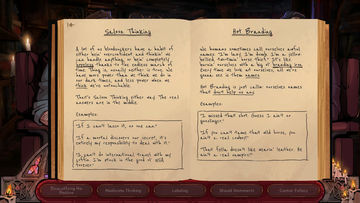 14
Saloon Thinking
A lot of us bloodsuckers have a habit of
either bein' overconfident and thinkin' we
can handle anything, or bein' completely
useless thanks to the endless march of
time. Thing is, usually neither is true; we
have more power than we think we do in
our dark times, and less power when we
think we're untouchable.
That's Saloon Thinking either way. The real
answers are in the middle.
Examples:
"If I can't lasso it, no one can."
"If a mortal discovers our secret, it's
entirely my responsibility to deal with it."
"I can't do international travel with my
coffin. I'm stuck in the good ol' west
forever."
Hot Branding
We humans sometimes call ourselves awful
names. "I'm lazy. I'm dumb. I'm a yellow-
bellied,
It's like
burnin' ourselves with a big ol' branding iron.
Every time we look at ourselves, all we're
gonna see is them names.
Hot Branding is just callin' ourselves names
that don't help us any.
Examples:
"I missed that shot. Guess I ain't no
gunslinger."
"If you can't tame that wild horse, you
ain't a real cowboy."
"That fella doesn't like wearin' leather. He
ain't a real vampire."
Demystifying the
Machine
Maladaptive Thinking
Labeling
Should Statements
Control Fallacy